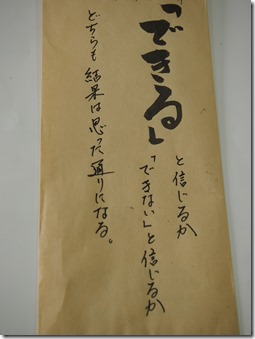 「できる」
と信じるか
「できない」と信じるか
どちらも結果は思った通りになる。